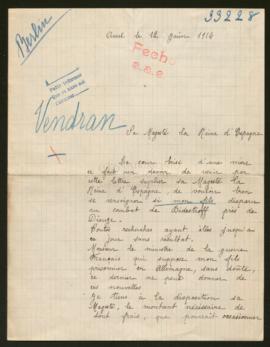 33228
Berlin
Auvel le 14 Juin 1916
Fecho
Vendran
Sa Majesté la Reine d'Espagne
Du cœur brisé d'une mère
se fait un devoir de venir par
cette lettre supplier sa Majesté la
Reine d'Espagne, de vouloir bien
se renseigner si mon fils disparu
au combat de Bidestroff près de
Dieuze.
Toutes recherches ayant étés jusqu'à
ce jour sans résultat.
Monsieur le ministre de la guerre
Français qui suppose mon fils
prisonnier en Allemagne, sans doute,
ce dernier ne peut donner de
ces nouvelles
Je tiens à la disposition sa
Majesté, le montant nécessaire de
tout frais, que pourrait occasionner